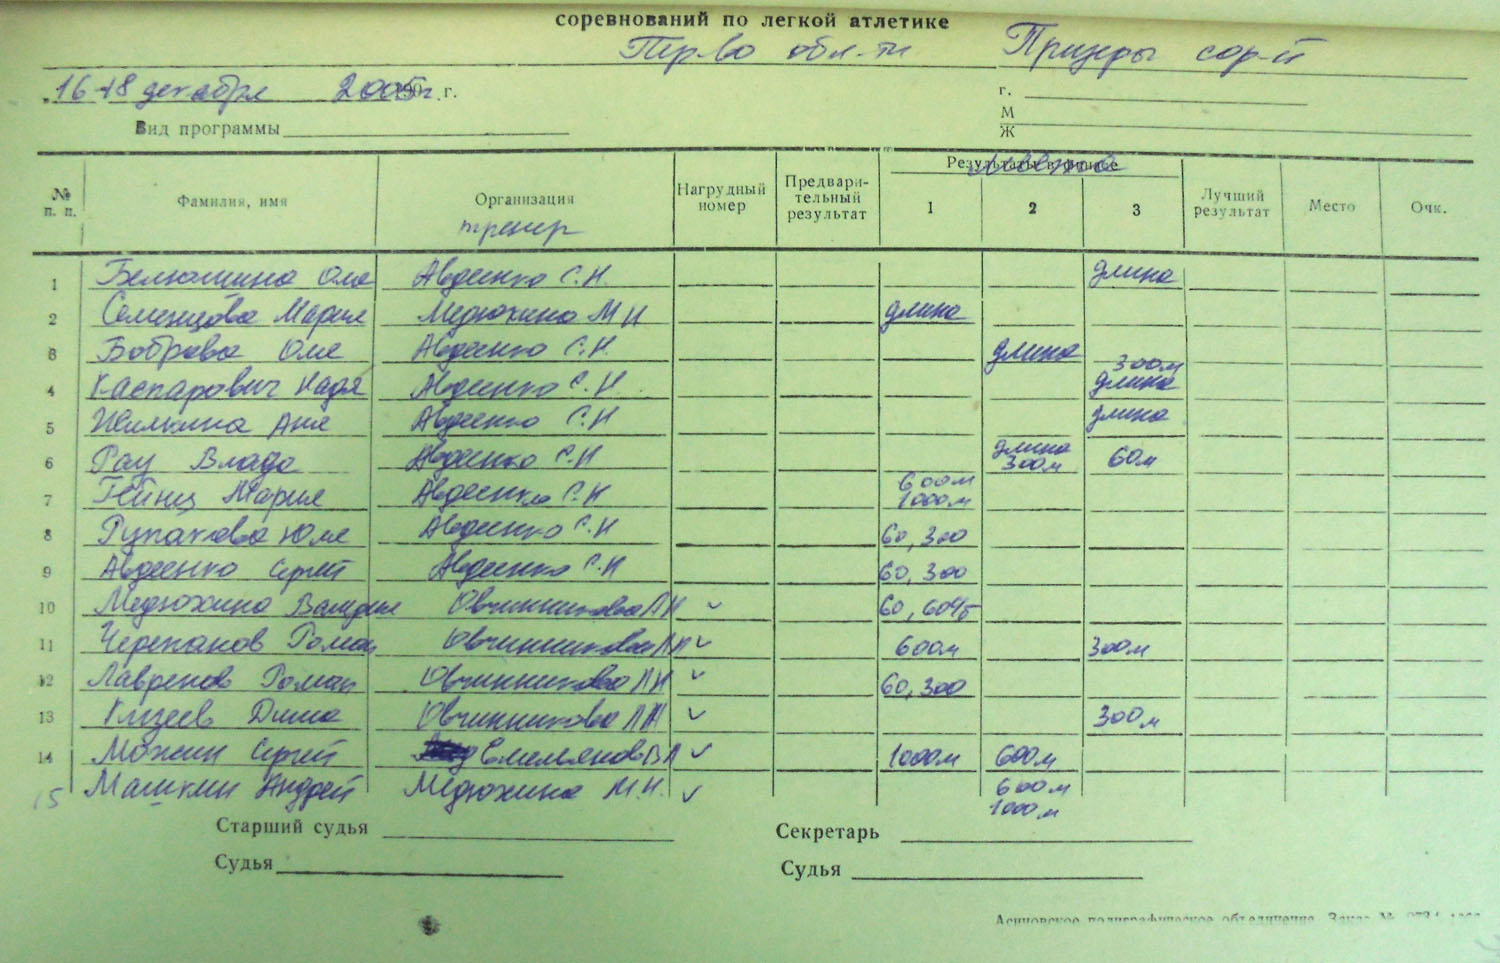 соревнований по легкой атлетике
Пер-во обл-ти Призеры сор-й
16-18 декабря 2005г. г. г.
Вид программы М
Ж
№ п. п. Фамилия, имя Организация тренер Нагрудный номер Предварительный результат Результаты в финале 1 2 3 Лучший результат Место Очк.
1 Белюшина Оля Авдеенко С.Н. длина
2 Семенцова Мария Медюхина М Н длина
3 Боброва Оля Авдеенко С.Н. длина
4 Каспарович Надя Авдеенко С.Н. 300м длина
5 Жилкина Аня Авдеенко С.Н длина
6 Рау Влада Авдеенко С.Н длина 300м 60м
7 Гейнц Мария Авдеенко С.Н 600м 1000м
8 Рупакова Юля Авдеенко С.Н 60, 300
9 Авдеенко Сергей Авдеенко С.Н 60, 300
10 Медюхина Валерия Овчинникова ЛН 60, 60чб
11 Черепанов Роман Овчинникова ЛН 600м 300м
12 Лавренов Роман Овчинникова ЛН 60, 300
13 Дима Овчинникова ЛН 300м
14 Можин Сергей Емельянов ВЛ 1000м 600м
15 Машкин Андрей Медюхина М.Н. 600м 1000м
Старший судья Секретарь
Судья Судья
Асиновское полиграфическое объединение. Заказ №